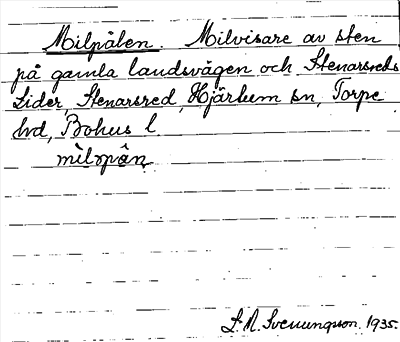 Milpålen Milvisare av sten
på gamla landsvägen och Stenarsreds
Lider, Stenarsred, Hjärtum sn, Torpe
hd, Bohus l
mìlpân
S. A. Svenungsson. 1935.